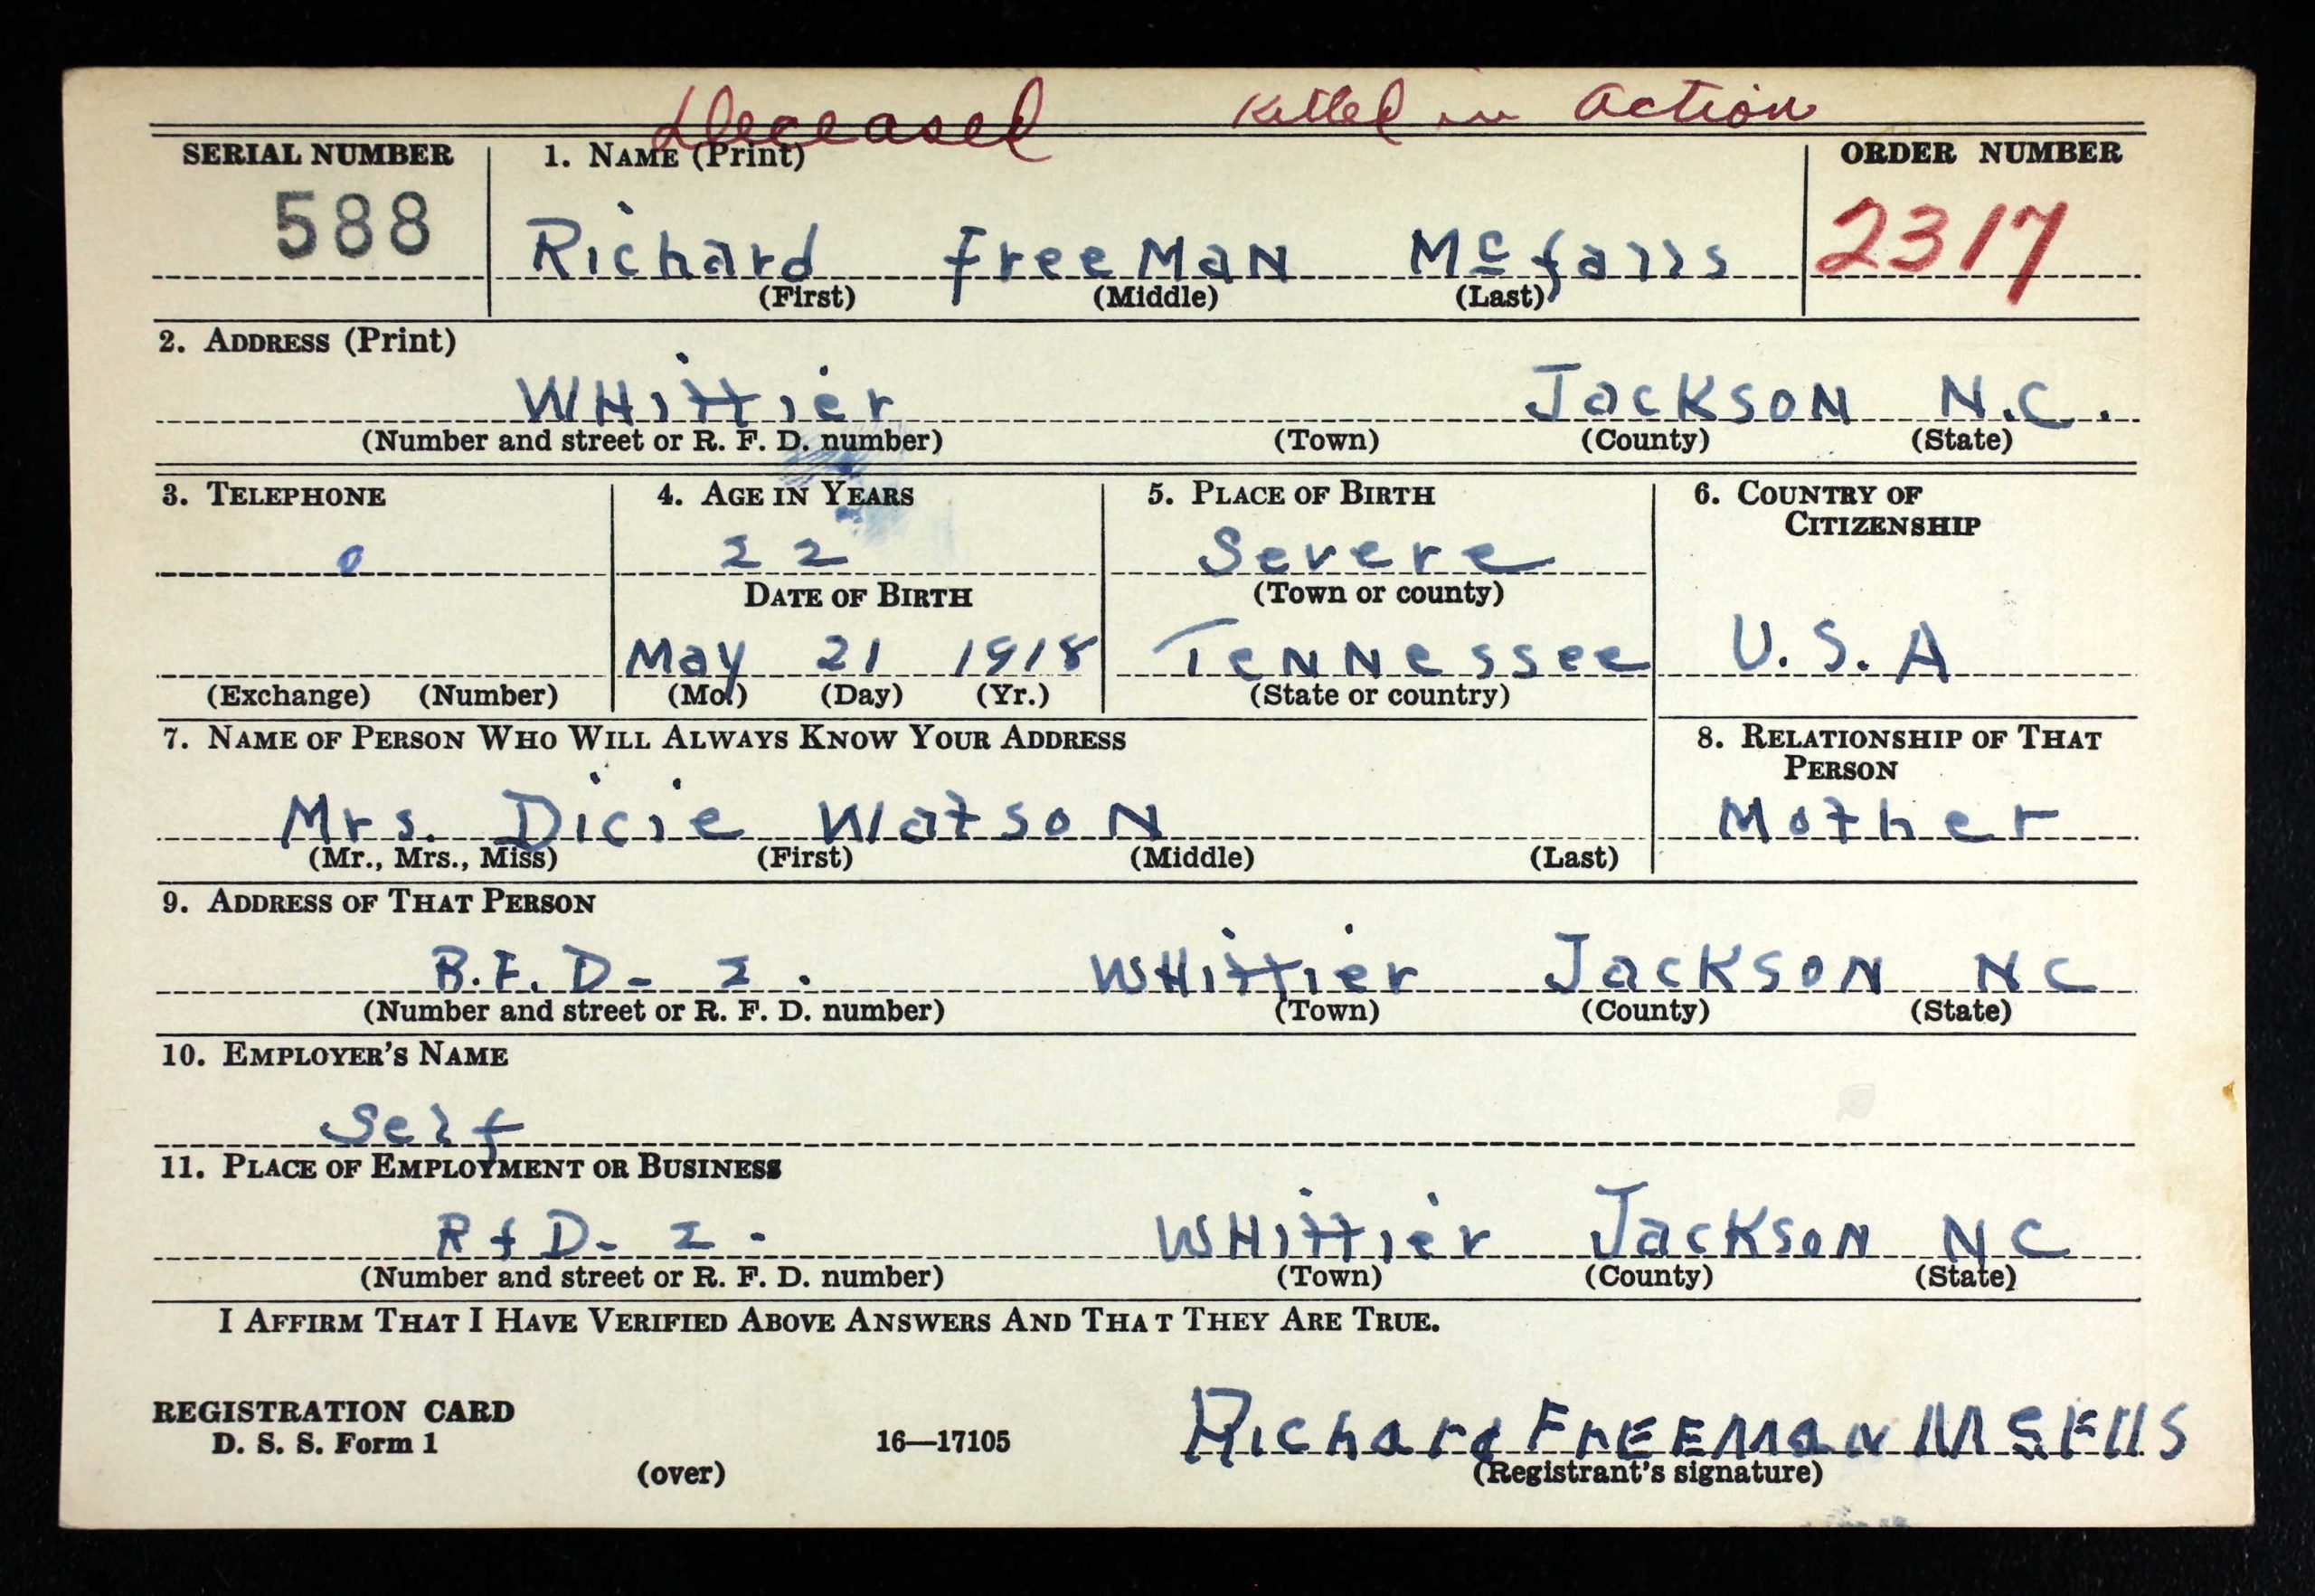 Deceased Killed in Action
SERIAL NUMBER 1. NAME (Print) ORDER NUMBER
588 Richard freeMaN Mc falls 2317
(First) (Middle) (Last)
2. ADDRESS (Print)
WHittier Jackson N.C.
(Number and street or R. F. D. number) (Town) (County) (State)
3. TELEPHONE 4. AGE IN YEARS 5. PLACE OF BIRTH 6. COUNTRY OF CITIZENSHIP
0 22 Severe
DATE OF BIRTH (Town or county)
May 21 1918 TeNNessee U.S.A
(Exchange) (Number) (Mo.) (Day) (Yr.) (State or country)
7. NAME OF PERSON WHO WILL ALWAYS KNOW YOUR ADDRESS 8. RELATIONSHIP OF THAT PERSON
Mrs. Dicie WatsoN Mother
(Mr., Mrs., Miss) (First) (Middle) (Last)
9. ADDRESS OF THAT PERSON
R.F.D- 2. WHittier JacKsoN NC
(Number and street or R. F. D. number) (Town) (County) (State)
10. EMPLOYER'S NAME
Self
11. PLACE OF EMPLOYMENT OR BUSINESS
R f D- 2- WHittier JacKsoN NC
(Number and street or R. F. D. number) (Town) (County) (State)
I AFFIRM THAT I HAVE VERIFIED ABOVE ANSWERS AND THAT THEY ARE TRUE.
REGISTRATION CARD
D. S. S. Form 1 16—17105 Richard FREEMaN
(over) (Registrant's signature)